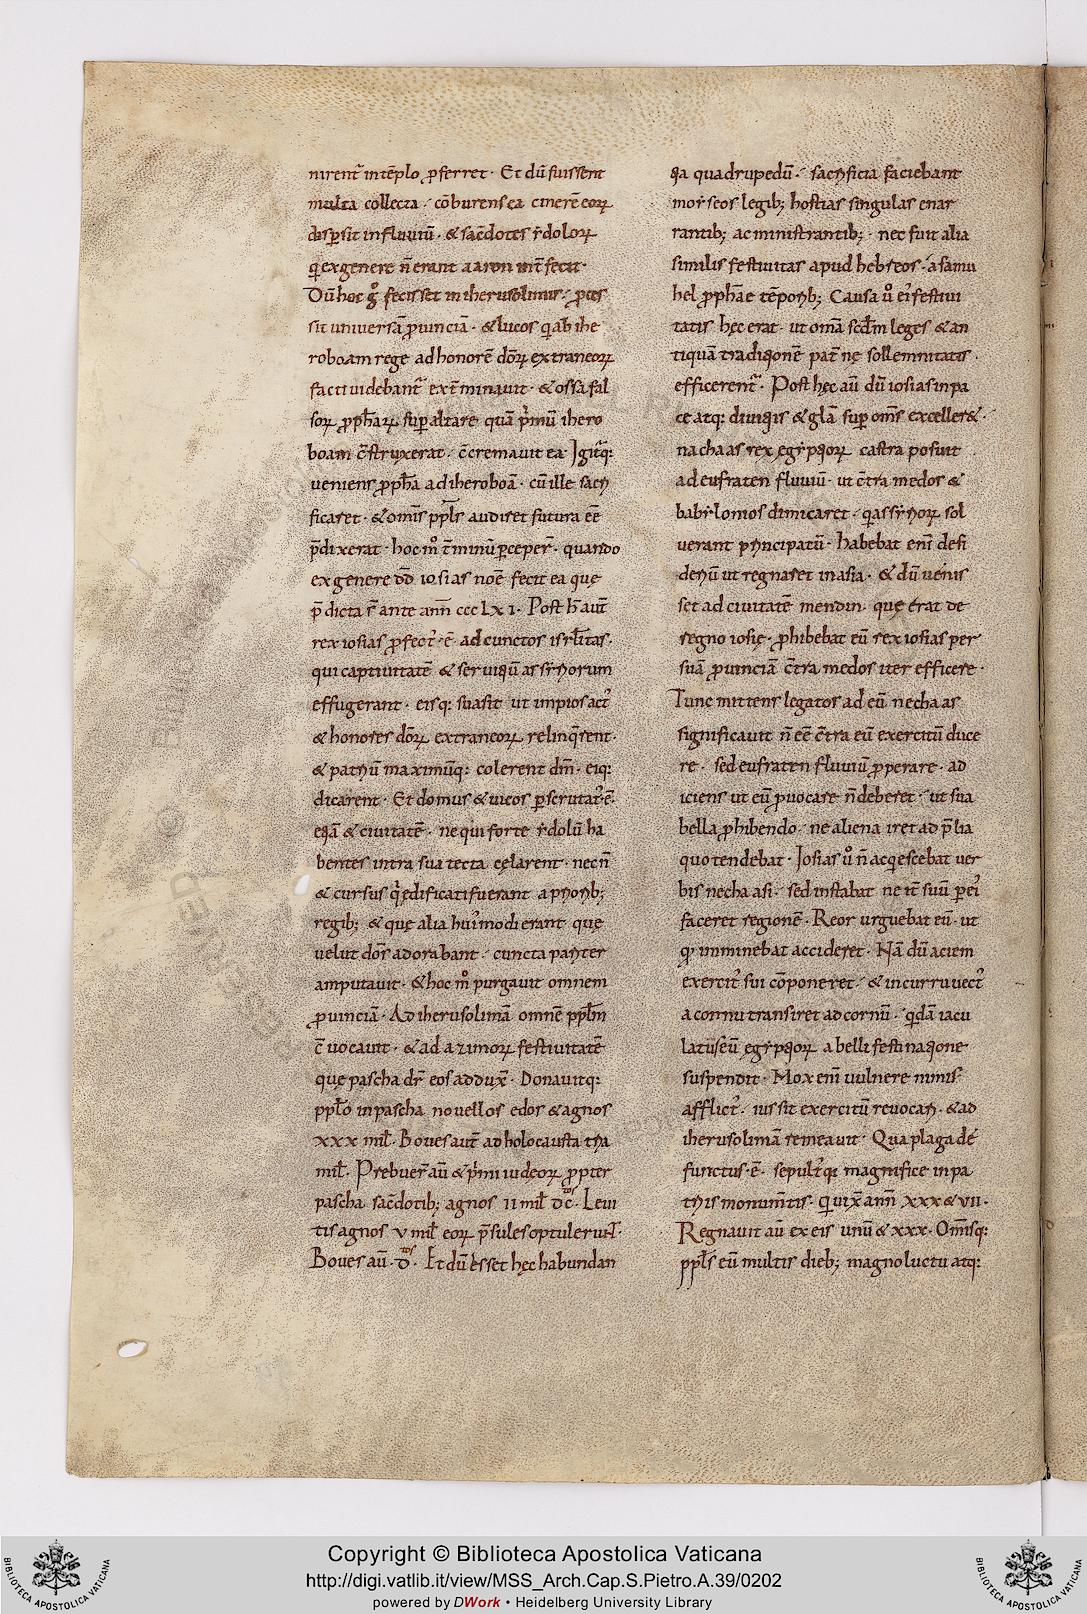 nirent᷑ intēplo ꝓferret · Et dū fuissent
multa collecta · cōburens ea cinerē eoꝝ
dispsit influuiū · & sac̄dotes ẏdoloꝝ
q̇ exgenere n̄ erant aaron int̄fecit ·
Dū hoc g̊ fecisset in iherusolimis · ꝓces
sit uniuersā ꝓuinciā · & lucos q̇ ab ihe
roboam rege ad honorē dōꝝ extraneoꝝ
facti uidebant᷑ ext̄minauit · & ossa fal
soꝝ ꝓph̄aꝝ suꝑ altare quā p̓mū ihero
boam c̄struxerat · c̄cremauit ea Igit᷑q:
ueniens ꝓph̄a adiheroboā · cū ille sacri
ficaret · & omīs ppl̄s audiret futura eē
p̄dixerat · hoc m̊ t̄minū ꝑceper̄ · quando
ex genere dd̄ iosias noē fecit ea que
p̄dicta s̄ ante ann̄ ccc lxi · Post h̄ aut̄
rex iosias ꝓfect᷒ · ē · ad cunctos isrl̄itas ·
qui captiuitatē & seruitiū assẏriorum
effugerant · eisq: suasit ut impios act᷒
& honores dōꝝ extraneoꝝ relinq̄rent ·
& patriū maximūq: colerent dm̄ · eiq:
dicarent · Et domus & uicos ꝑscrutat᷒ · ē ·
etiā & ciuitatē · ne qui forte ẏdolū ha
bentes intra sua tecta cęlarent · necn̄
& cursus q̓ edificati fuerant a priorib;
regib; & que alia hui᷒modi erant que
uelut dōs adorabant · cuncta pariter
amputauit · & hoc m̊ purgauit omnem
ꝓuinciā · Ad iherusolimā omnē ppl̄m
c̄uocauit · & ad azimoꝝ festiuitatē
que pascha dr̄ eos adduxͣ · Donauitq:
ppl̄o inpascha nouellos edos & agnos
xxx mil̄ · Boues aut̄ ad holocausta tria
mil̄ · Prebuer̄ aū & p̓mi iudeoꝝ ꝓpter
pascha sac̄dotib; agnos ii mil̄ dc̄ · Leui
tis agnos v mil̄ eoꝝ p̄sules optulerunt ·
Boues aū · d̄ · Et dū esset hęc habundan
tia quadrupedū · sacrificia faciebant
moẏseos legib; hostias singulas enar
rantib; ac ministrantib; · nec fuit alia
similis festiuitas apud hebreos · a samu
hel ꝓph̄ae tēporib; Causa ů ei᷒ festiui
tatis hęc erat · ut omīa scd̄m leges & an
tiquā traditionē pat̄ne sollemnitatis ·
efficerent᷑ · Post hęc aū dū iosias inpa
ce atq: diuitiis & glā suꝑ omīs excelleret ·
nachaas rex egẏptioꝝ castra posuit
ad eufraten fluuiū · ut c̄tra medos &
babẏlonios dimicaret · q̇ assẏrioꝝ sol
uerant principatū · habebat enī desi
deriū ut regnaret inasia · & dū uenis
set ad ciuitatē mendin · que erat de
regno iosię · ꝓhibebat eū rex iosias per
suā ꝓuinciā c̄tra medos iter efficere ·
Tunc mittens legatos ad eū nechaas
significauit n̄ eē c̄tra eū exercitū duce
re · sed eufraten fluuiū ꝓperare · ad
iciens ut eū ꝓuocare n̄ deberet · ut sua
bella ꝓhibendo · ne aliena iret ad p̄lia
quo tendebat · Iosias ů n̄ acq̇escebat uer
bis nechaasi · sed instabat ne it̄ suū ꝑ ei᷒
faceret regionē · Reor urguebat eū · ut
qd̄ imminebat accideret · Nā dū aciem
exercit᷒ sui cōponeret · & incurru uect᷒
a cornu transiret ad cornū · q̇dā iacu
latus eū egẏptioꝝ a belli festinatione
suspendit · Mox enī uulnere nimis
afflict᷒ · iussit exercitū reuocari · & ad
iherusolimā remeauit · Qua plaga de
functus · ē · sepult᷒q: magnifice inpa
triis monum̄tis · q̇ uix̄ ann̄ xxx & vii ·
Regnauit aū ex eis unū & xxx · Omīsq:
ppl̄s eū multis dieb; magno luctu atq:
Copyright © Biblioteca Apostolica Vaticana
http://digi.vatlib.it/view/MSS_Arch.Cap.S.Pietro.A.39/0202
powered by DWork • Heidelberg University Library
BIBLIOTECA APOSTOLICA VATICANA
BIBLIOTECA APOSTOLICA VATICANA